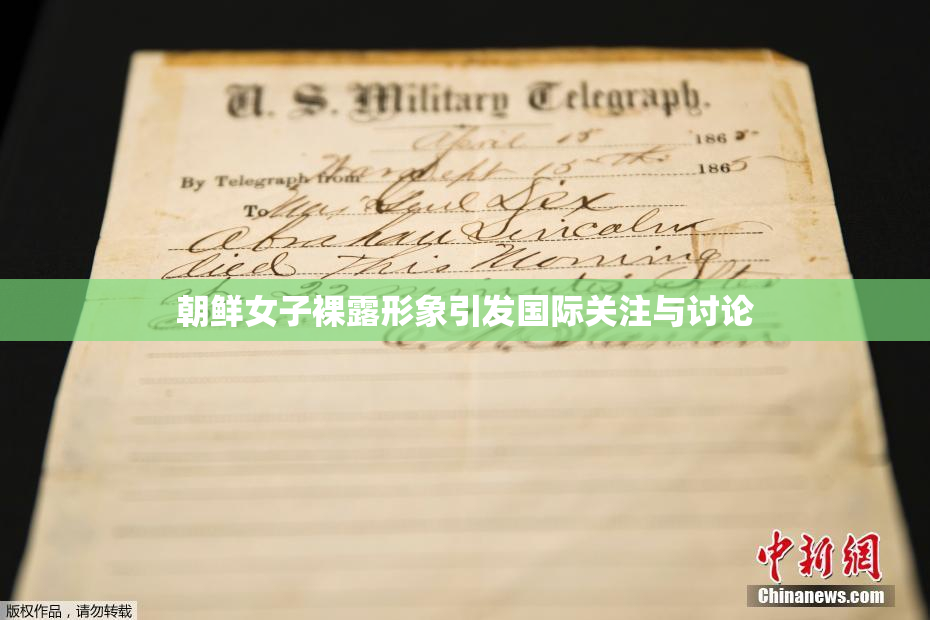 U. S. Military Telegraph.
April 15 1865
By Telegraph from War Dept 15th 1865
To Maj Genl Dix
Abraham Lincoln
died this morning
at 22 minutes after
朝鲜女子裸露形象引发国际关注与讨论
E. M. Stanton
中新网
Chinanews.com
版权作品，请勿转载